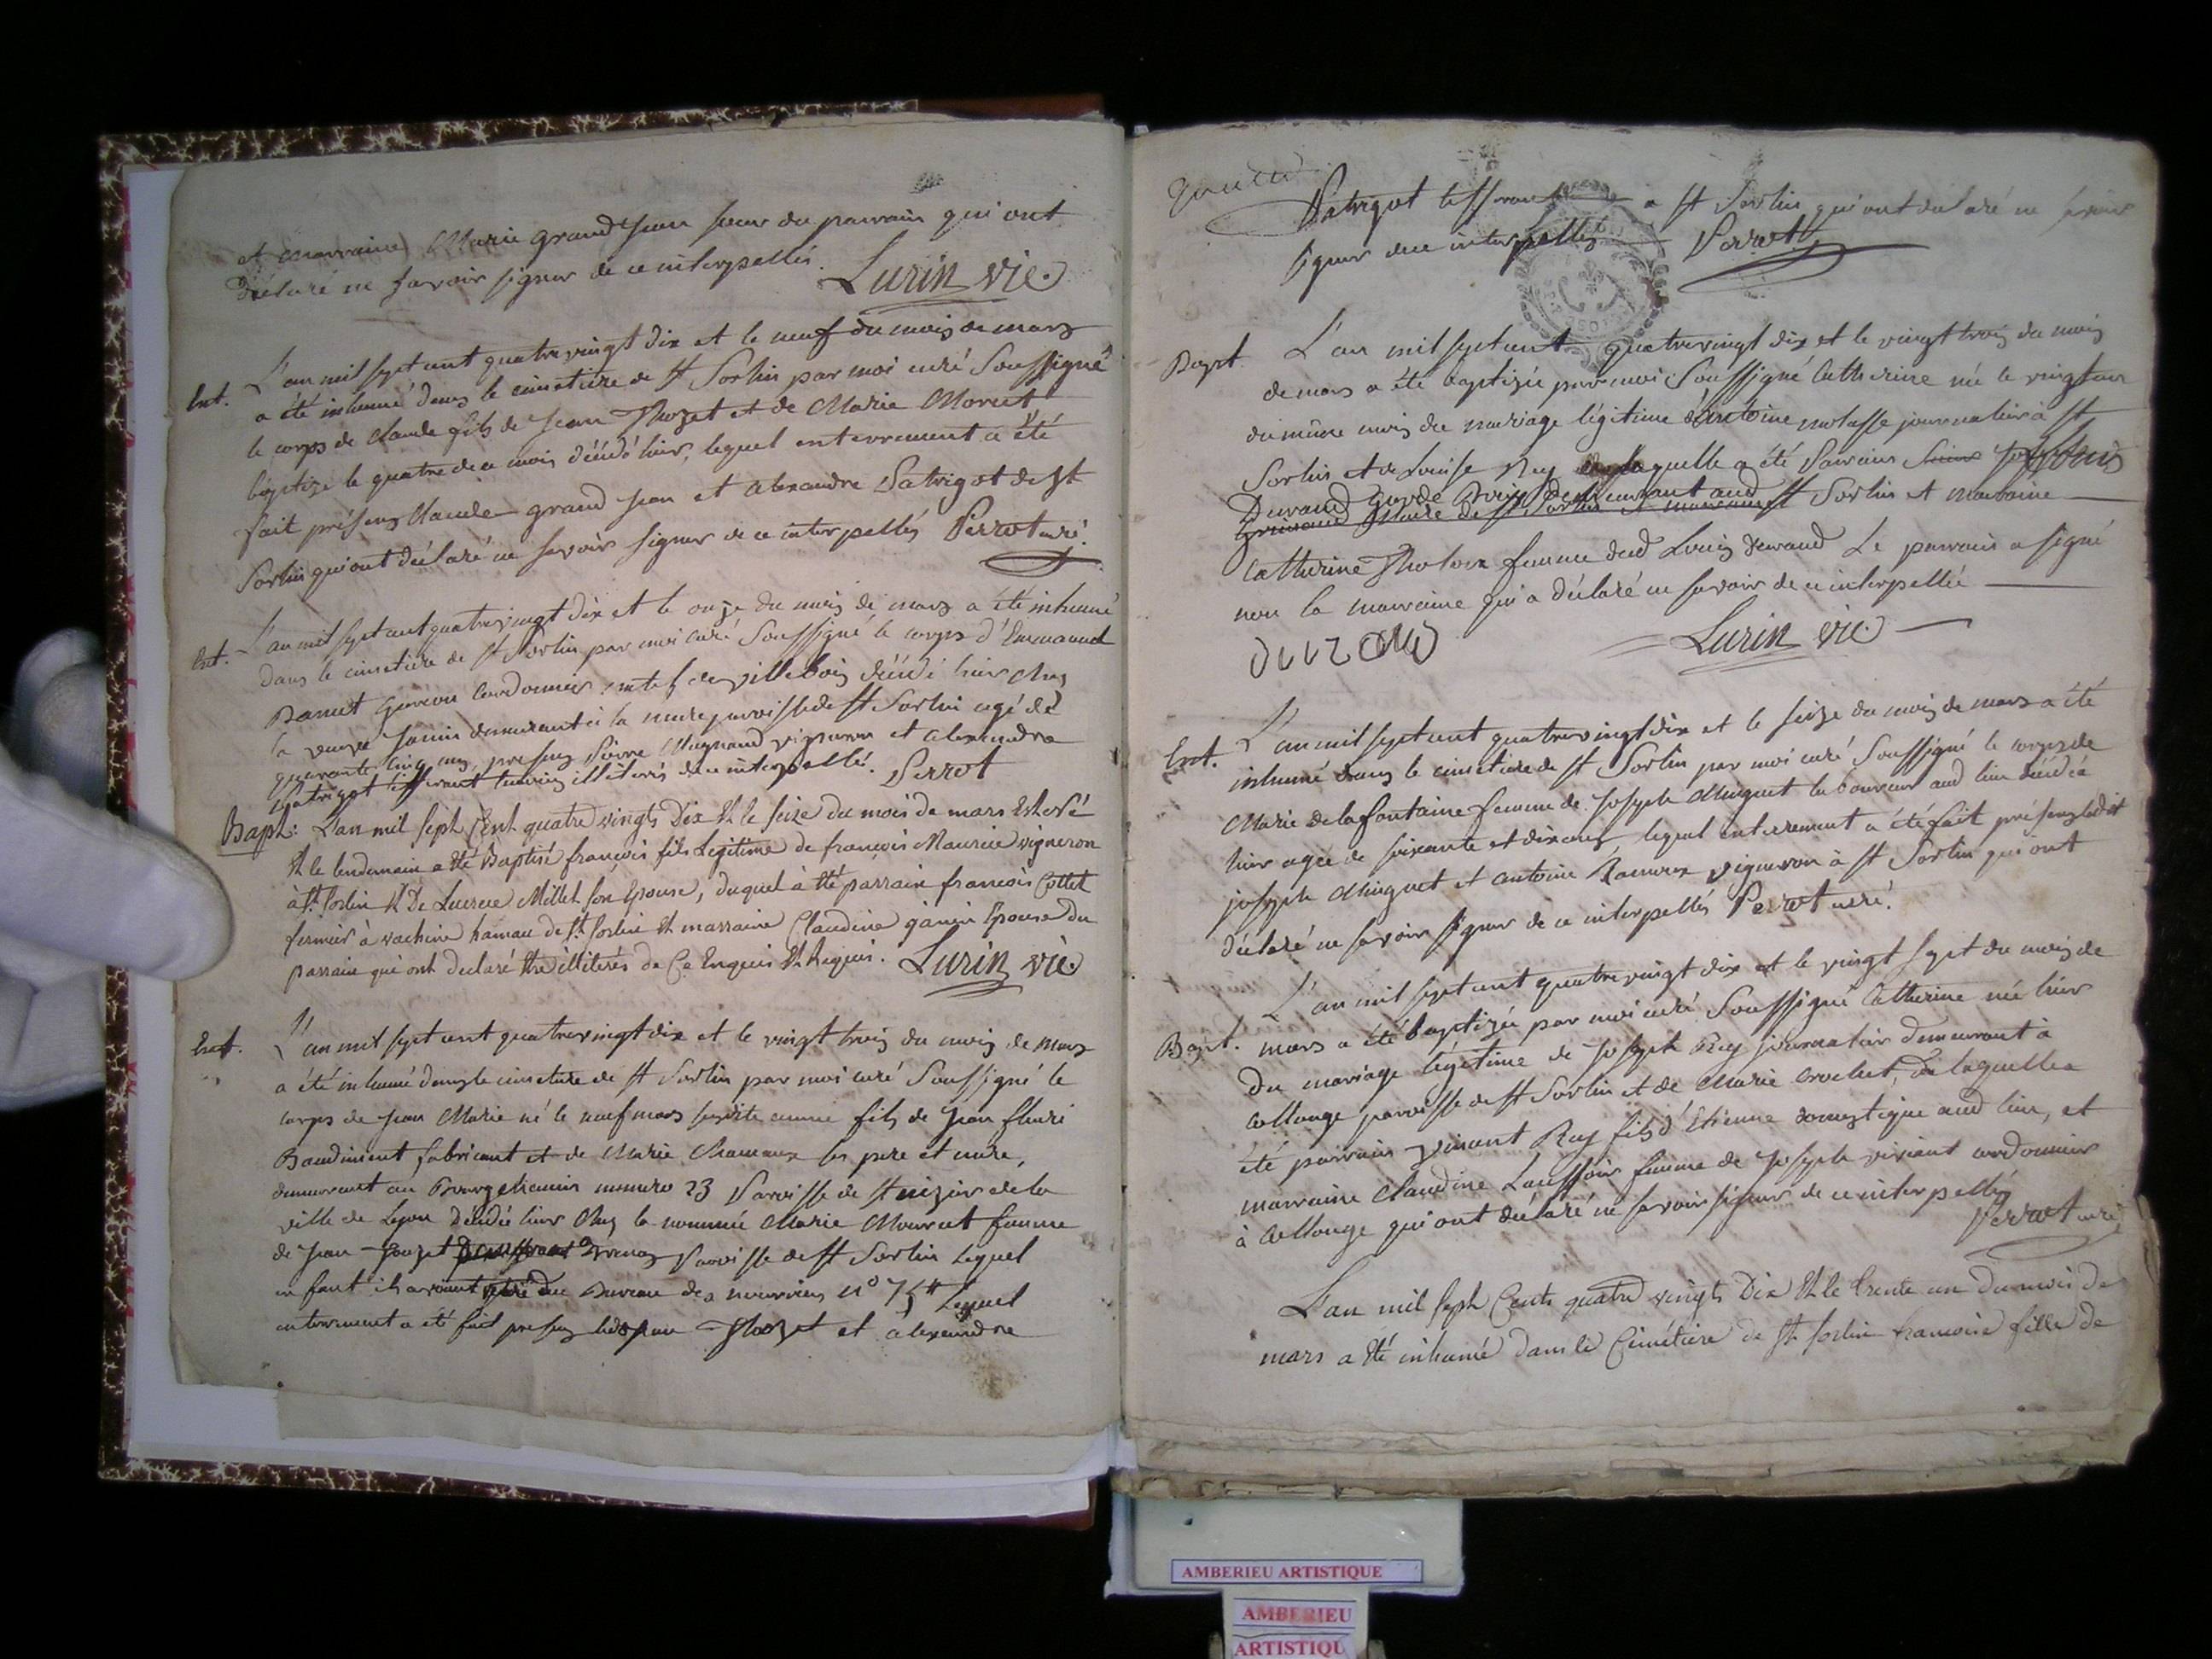 et marraine Marie grand Jean sœur du parrain qui ont
déclaré ne savoir signer de ce interpellés. Lurin vic.
Ent. L'an mil sept cent quatre vingt dix et le neuf du mois de mars
a été inhumé dans le cimetiere de St Sorlin par moi curé Soussigné
le corps de Claude fils de Jean Thozet et de Marie Moret
baptizé le quatre de ce mois décédé hier, lequel enterrement a été
fait présens Claude grand Jean et alexandre Patrigot de St
Sorlin qui ont déclaré ne savoir signer de ce interpellés Perrot curé.
Ent. L'an mil sept cent quatre vingt dix et le onze du mois de mars a été inhumé
dans le cimetiere de St Sorlin par moi curé Soussigné le corps d'Emmanuel
garcon Cordonnier de villebois décédé hier chez
la veuve Janin demeurant à la paroisse de St Sorlin agé de
quarante cinq ans, présens Pierre Magnand vigneron et alexandre
Patrigot tisserant illiterés de ce interpellé. Perrot
Bapt: L'an mil sept Cent quatre vingts Dix Et le seize du mois de mars Est né
Et le lendemain a été Baptisé françois fils Legitime de françois Maurice vigneron
à St. Sorlin Et De Lucrece Millet son Epouse, duquel à été parrain francois Collet
fermier à vachine hamau de St. Sorlin Et marraine Claudine janin Epouse du
parrain qui ont declaré Etre illiterés de Ce Enquis Et Requis. Lurin vic.
Ent. L'an mil sept cent quatre vingt dix et le vingt trois du mois de mars
a été inhumé dans le cimetiere de St Sorlin par moi curé Soussigné le
corps de Jean Marie né le neuf mars susdite année fils de Jean fleuri
Baudiment fabricant et de Marie Chameaux les pere et mere,
demeurant au Bourgchanin numero 23 Paroisse de St nizier de la
ville de Lyon décédé hier chez la nommée Marie Mourret femme
de Jean Paroisse de St Sorlin Lequel
enfant ils avoient du Bureau des nourrices n° Lequel
enterrement a été fait présens ledit Jean Thozet et alexandre
Patrigot tisserant a St Sorlin qui ont déclaré ne savoir
signer de ce interpellés Perrot
Bapt. L'an mil sept cent quatre vingt dix et le vingt trois du mois
de mars a été baptizée par moi Soussigné Catherine née le vingt un
du même mois du mariage légitime d'Antoine molasse journalier à St
Sorlin et de Louise Rey de laquelle a été Parrain Louis
Durand garde Bois demeurant aud St Sorlin et marraine
Catherine femme dud Louis Durand Le parrain a signé
non la marraine qui a déclaré ne savoir de ce interpellée
durand Lurin vic.
Ent. L'an mil sept cent quatre vingt dix et le seize du mois de mars a été
inhumé dans le cimetiere de St Sorlin par moi curé Soussigné le corps de
Marie de la fontaine femme de Joseph Minguet laboureur aud lieu décédée
hier agée de soixante et dix ans, lequel enterrement a été fait présens ledit
joseph Minguet et antoine vigneron à St Sorlin qui ont
déclaré ne savoir signer de ce interpellés Perrot curé.
Bapt. L'an mil sept cent quatre vingt dix et le vingt sept du mois de
mars a été baptizée par moi curé Soussigné Catherine née hier
du mariage légitime de Joseph Rey journalier demeurant à
Collonge paroisse de St Sorlin et de Marie Crochet, de laquelle a
été parrain vincent Rey fils d'Etienne domestique aud lieu, et
marraine Claudine femme de Joseph vivient cordonnier
à Collonge qui ont déclaré ne savoir signer de ce interpellés
Perrot curé
L'an mil sept Cents quatre vingts Dix Et le trente un du mois de
mars a été inhumé dans le Cimétiere de St. Sorlin francoise fille de
AMBERIEU ARTISTIQUE
AMBERIEU
ARTISTIQU